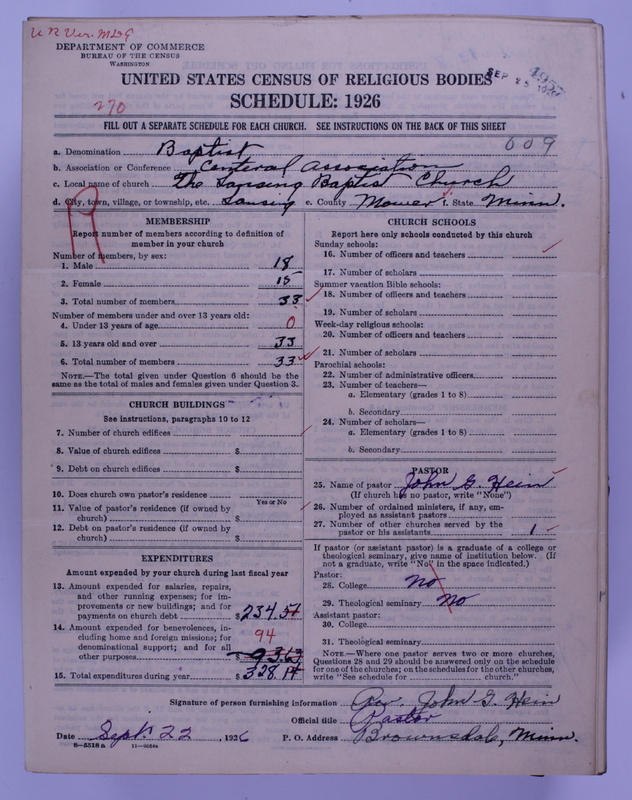 U.S. Ver. MLG
DEPARTMENT OF COMMERCE
BUREAU OF THE CENSUS
WASHINGTON
UNITED STATES CENSUS OF RELIGIOUS BODIES
SEP 25 1926
270
SCHEDULE: 1926
FILL OUT A SEPARATE SCHEDULE FOR EACH CHURCH. SEE INSTRUCTIONS ON THE BACK OF THIS SHEET
009
a. Denomination Baptist
b. Association or Conference Centeral Association
c. Local name of church The Lansing Baptist Church
d. City, town, village, or township, etc. Lansing e. County Mower f. State Minn.
MEMBERSHIP
Report number of members according to definition of
member in your church
Number of members, by sex:
1. Male 18
2. Female 15
3. Total number of members 33
Number of members under and over 13 years old:
4. Under 13 years of age 0
5. 13 years old and over 33
6. Total number of members 33
NOTE.—The total given under Question 6 should be the
same as the total of males and females given under Question 3.
CHURCH BUILDINGS
See instructions, paragraphs 10 to 12
7. Number of church edifices
8. Value of church edifices $
9. Debt on church edifices $
10. Does church own pastor's residence
Yes or No
11. Value of pastor's residence (if owned by
church) $
12. Debt on pastor's residence (if owned by
church) $
EXPENDITURES
Amount expended by your church during last fiscal year
13. Amount expended for salaries, repairs,
and other running expenses; for im-
provements or new buildings; and for
payments on church debt $234.51
14. Amount expended for benevolences, in-
cluding home and foreign missions; for
denominational support; and for all
other purposes $ 93.63
94
15. Total expenditures during year $328.14
CHURCH SCHOOLS
Report here only schools conducted by this church
Sunday schools:
16. Number of officers and teachers
17. Number of scholars
Summer vacation Bible schools:
18. Number of officers and teachers
19. Number of scholars
Week-day religious schools:
20. Number of officers and teachers
21. Number of scholars
Parochial schools:
22. Number of administrative officers
23. Number of teachers—
a. Elementary (grades 1 to 8)
b. Secondary
24. Number of scholars—
a. Elementary (grades 1 to 8)
b. Secondary
PASTOR
25. Name of pastor John G. Hein
(If church has no pastor, write "None")
26. Number of ordained ministers, if any, em-
ployed as assistant pastors
27. Number of other churches served by the
pastor or his assistants 1
If pastor (or assistant pastor) is a graduate of a college or
theological seminary, give name of institution below. (If
not a graduate, write "No" in the space indicated.)
Pastor:
28. College no
29. Theological seminary No
Assistant pastor:
30. College
31. Theological seminary
NOTE.—Where one pastor serves two or more churches,
Questions 28 and 29 should be answered only on the schedule
for one of the churches; on the schedules for the other churches,
write "See schedule for church."
Signature of person furnishing information Rev. John G. Hein
Official title Pastor
Date Sept. 22, 1926 P. O. Address Brownsdale, Minn.
8—5518a